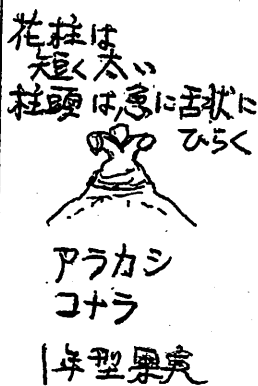 花柱は
短く太い
柱頭は急に舌状に
ひらく
アラカシ
コナラ
1年型果実